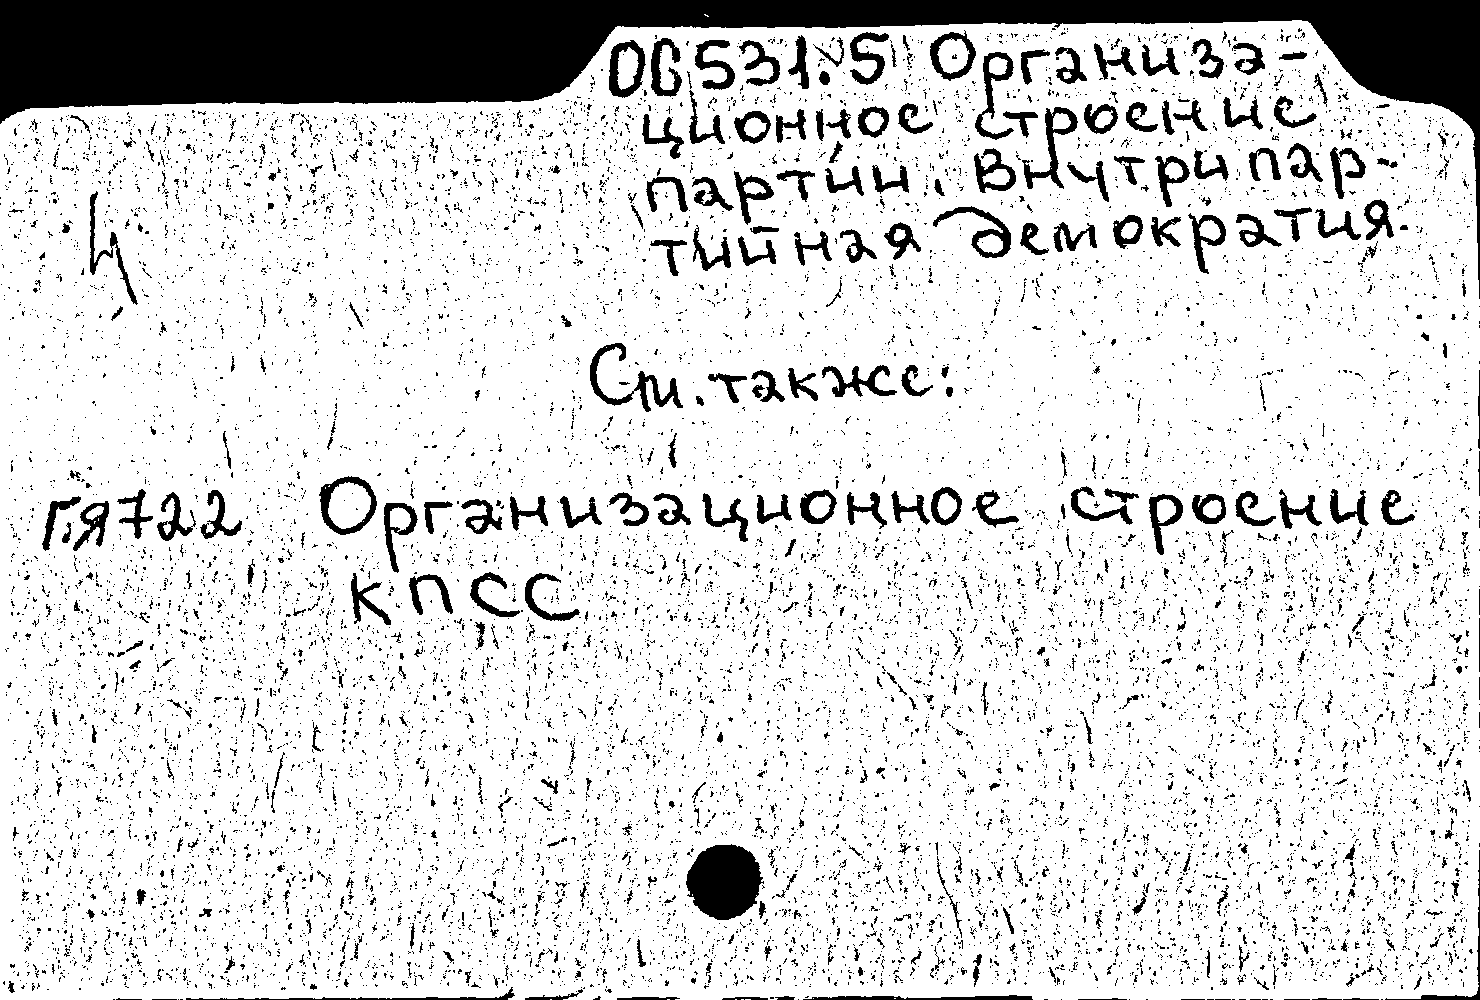 ОС531.5 Организа-
ционное строение
партии. Внутрипар-
тийная демократия.
4
См. также:
Г.Я722 Организационное строение
КПСС